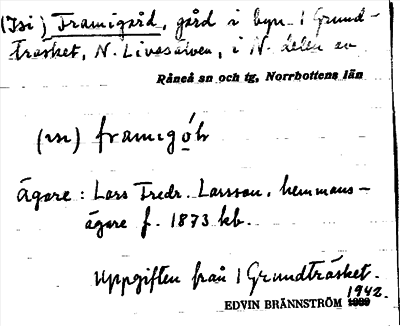 (Isi) Framigård, gård i byn 1 Grund-
träsket, N. Livasälven, i N. delen av
Råneå sn och tg, Norrbottens län
(ısı) framıgǫ́lr
Ägare: Lars Fredr. Larsson, hemmans-
ägare f. 1873 kb.
Uppgiften från 1 Grundträsket.
1942.
EDVIN BRÄNNSTRÖM 1939